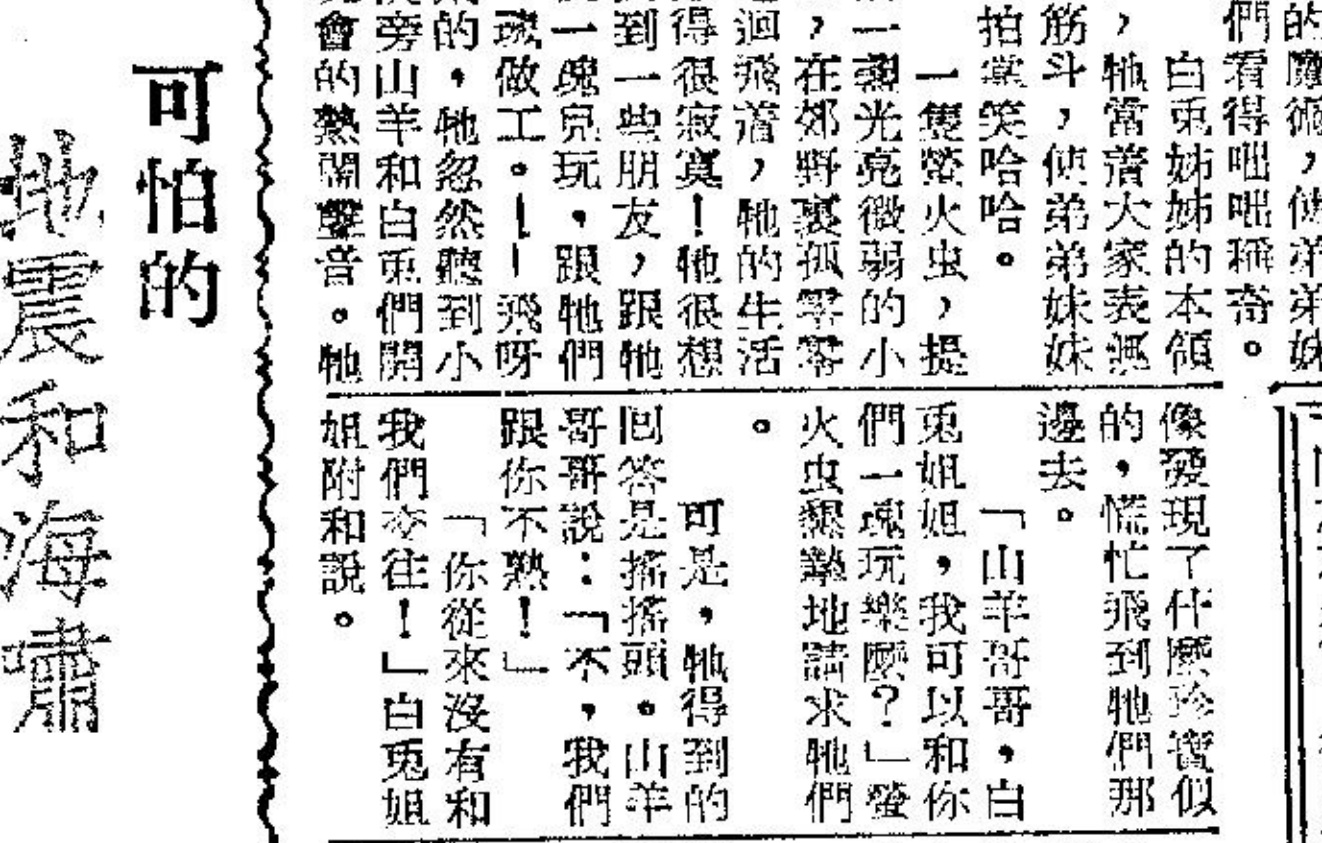 的魔術，使弟弟妹
們看得咄咄稱奇。
白兎姊姊的本領
，牠當着大家表
筋斗，使弟弟妹妹
拍掌笑哈哈。
一隻螢火虫，提
一熠光亮微弱的小
，在郊野裏孤零零
迴飛着，牠的生活
得很寂寞！牠很想
到一些朋友，跟牠
一塊兒玩，跟牠們
塊做工。——飛呀
的，牠忽然聽到小
旁山羊和白兎們開
會的熱鬧聲音。牠
像發現了什麽珍寳似
的，慌忙飛到牠們那
邊去。
「山羊哥哥，白
兎姐姐，我可以和你
們一塊玩樂麽？」螢
火虫懇摯地請求牠們
。
可是，牠得到的
囘答是搖搖頭。山羊
哥哥說：「不，我們
跟你不熟！」
「你從來沒有和
我們來往！」白兎姐
姐附和說。
可怕的
地震和海嘯